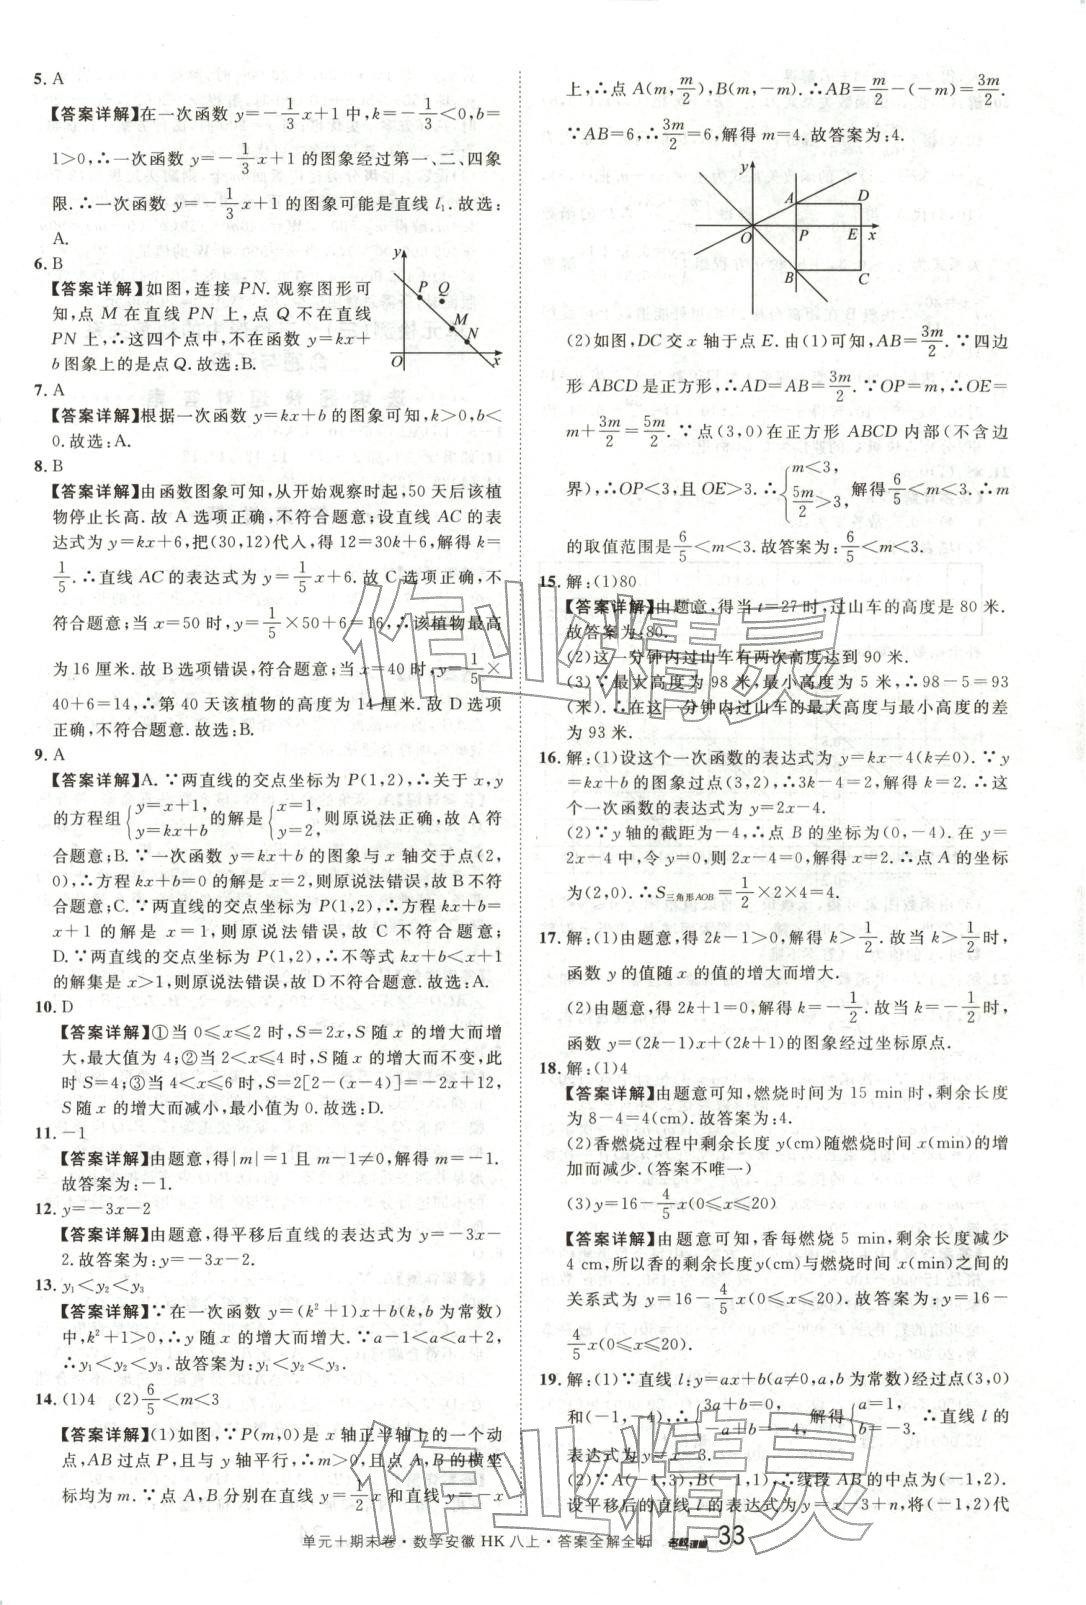 5. A
【答案详解】在一次函数 y=-1/3x+1 中,k=-1/3<0,b=
1>0,∴一次函数 y=-1/3x+1 的图象经过第一、二、四象
限.∴一次函数 y=-1/3x+1 的图象可能是直线 l₁.故选:
A.
6. B
【答案详解】如图,连接 PN. 观察图形可
知,点 M 在直线 PN 上,点 Q 不在直线
PN 上,∴这四个点中,不在函数 y=kx+
b 图象上的是点 Q.故选:B.
y P Q M N O x
7. A
【答案详解】根据一次函数 y=kx+b 的图象可知,k>0,b<
0.故选:A.
8. B
【答案详解】由函数图象可知,从开始观察时起,50 天后该植
物停止长高.故 A 选项正确,不符合题意;设直线 AC 的表
达式为 y=kx+6,把(30,12)代人,得 12=30k+6,解得 k=
1/5.∴直线 AC 的表达式为 y=1/5x+6.故 C 选项正确,不
符合题意;当 x=50 时,y=1/5×50+6=16,∴该植物最高
为 16 厘米.故 B 选项错误,符合题意;当 x=40 时,y=1/5×
40+6=14,∴第 40 天该植物的高度为 14 厘米.故 D 选项
正确,不符合题意.故选:B.
9. A
【答案详解】A.∵两直线的交点坐标为 P(1,2),∴关于 x,y
的方程组{y=x+1, y=kx+b 的解是{x=1, y=2, 则原说法正确,故 A 符
合题意;B.∵一次函数 y=kx+b 的图象与 x 轴交于点(2,
0),∴方程 kx+b=0 的解是 x=2,则原说法错误,故 B 不符
合题意;C.∵两直线的交点坐标为 P(1,2),∴方程 kx+b=
x+1 的解是 x=1,则原说法错误,故 C 不符合题意;
D.∵两直线的交点坐标为 P(1,2),∴不等式 kx+b<x+1
的解集是 x>1,则原说法错误,故 D 不符合题意.故选:A.
10. D
【答案详解】①当 0≤x≤2 时,S=2x,S 随 x 的增大而增
大,最大值为 4;②当 2<x≤4 时,S 随 x 的增大而不变,此
时 S=4;③当 4<x≤6 时,S=2[2-(x-4)]=-2x+12,
S 随 x 的增大而减小,最大值小于 4.故选:D.
11. -1
【答案详解】由题意,得|m|=1 且 m-1≠0,解得 m=-1.
故答案为:-1.
12. y=-3x-2
【答案详解】由题意,得平移后直线的表达式为 y=-3x-
2.故答案为:y=-3x-2.
13. y₁<y₂<y₃
【答案详解】∵在一次函数 y=(k²+1)x+b(k,b 为常数)
中,k²+1>0,∴y 随 x 的增大而增大.∵a-1<a<a+2,
∴y₁<y₂<y₃.故答案为:y₁<y₂<y₃.
14. (1)4 (2)6/5<m<3
【答案详解】(1)如图,∵P(m,0)是 x 轴正半轴上的一个动
点,AB 过点 P,且与 y 轴平行,∴点 A 和点 B 的横坐
标均为 m.∵点 A,B 分别在直线 y=1/2x 和直线 y=-x
上,∴点 A(m,m/2),B(m,-m).∴AB=m/2-(-m)=3m/2.
∵AB=6,∴3m/2=6,解得 m=4.故答案为:4.
y A D O P E x B C
(2)如图,DC 交 x 轴于点 E.由(1)可知,AB=3m/2.∵四边
形 ABCD 是正方形,∴AD=AB=3m/2.∵OP=m,∴OE=
m+3m/2=5m/2.∵点(3,0)在正方形 ABCD 内部(不含边
界),∴OP<3,且 OE>3.∴{m<3, 5m/2>3, 解得6/5<m<3.∴m
的取值范围是6/5<m<3.故答案为:6/5<m<3.
15. 解:(1)80
【答案详解】由题意,得当 t=27 时,过山车的高度是 80 米.
故答案为:80.
(2)这一分钟内过山车有两次高度达到 90 米.
(3)∵最大高度为 98 米,最小高度为 5 米,∴98-5=93
(米).∴在这一分钟内过山车的最大高度与最小高度的差
为 93 米.
16. 解:(1)设这个一次函数的表达式为 y=kx-4(k≠0).∵y
=kx+b 的图象过点(3,2),∴3k-4=2,解得 k=2.∴这
个一次函数的表达式为 y=2x-4.
(2)∵y 轴的截距为-4,∴点 B 的坐标为(0,-4).在 y=
2x-4 中,令 y=0,则2x-4=0,解得x=2.∴点 A 的坐标
为(2,0).∴S三角形AOB=1/2×2×4=4.
17. 解:(1)由题意,得 2k-1>0,解得 k>1/2.故当 k>1/2时,
函数 y 的值随 x 的值的增大而增大.
(2)由题意,得 2k+1=0,解得 k=-1/2.故当 k=-1/2时,
函数 y=(2k-1)x+(2k+1)的图象经过坐标原点.
18. 解:(1)4
【答案详解】由题意可知,燃烧时间为 15 min 时,剩余长度
为 8-4=4(cm).故答案为:4.
(2)香燃烧过程中剩余长度 y(cm)随燃烧时间 x(min)的增
加而减少.(答案不唯一)
(3)y=16-4/5x(0≤x≤20)
【答案详解】由题意可知,香每燃烧 5 min,剩余长度减少
4 cm,所以香的剩余长度y(cm)与燃烧时间 x(min)之间的
关系式为 y=16-4/5x(0≤x≤20).故答案为:y=16-
4/5x(0≤x≤20).
19. 解:(1)∵直线 l:y=ax+b(a≠0,a,b 为常数)经过点(3,0)
和(-1,-4),∴{3a+b=0, -a+b=-4, 解得{a=1, b=-3. ∴直线 l 的
表达式为 y=x-3.
(2)∵A(-1,3),B(-1,1),∴线段 AB 的中点为(-1,2).
设平移后的直线 l 的表达式为 y=x-3+n,将(-1,2)代
单元+期末卷·数学安徽 HK 八上·答案全解全析 名校课堂 33
作业精灵
作业精灵